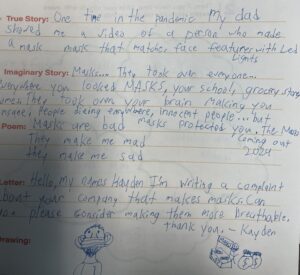 True Story: One time in the pandemic my dad
showed me a video of a person who made
a mask mask that matches face features with Led
Lights
Imaginary Story: Masks... They took over everyone...
Everywhere you looked MASKS, your school, grocery store
They took over your brain making you
insane, people dieing everywhere, innocent people... but
masks protected you. The Masks
coming out
2024
Poem: Masks are bad
They make me mad
they make me sad
Letter: Hello, My names Kayden I'm writing a complaint
about your company that makes masks. Can
you please consider making them more breathable.
thank you, - Kayden
Drawing: